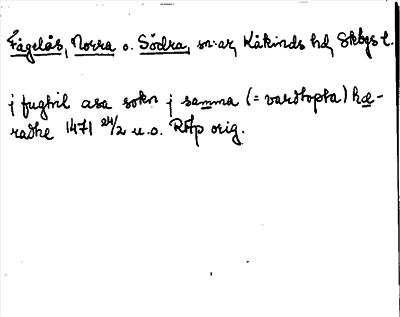 Fågelås, Norra o. Södra, sn:ar, Kåkinds hd, Skbgs l.
j fughil asa sokn j samma (= vardhopta) hæ-
radhe 1471 24/2 u.o. RAp orig.